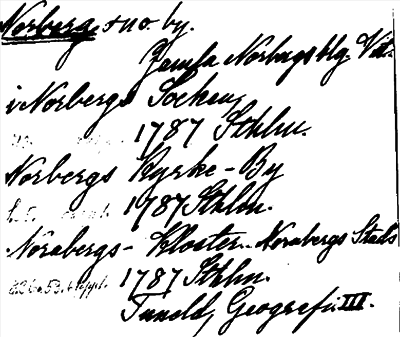 Norberg, s no. by.
Jemfa Norbergs blg. Vet.
i Norbergs Socken,
1787 Sthlm.
Norbergs Kyrke-By
1787 Sthlm.
Norabergs-Kloster. Norabergs Stads
1787 Sthlm.
Tuneld, Geografi III.